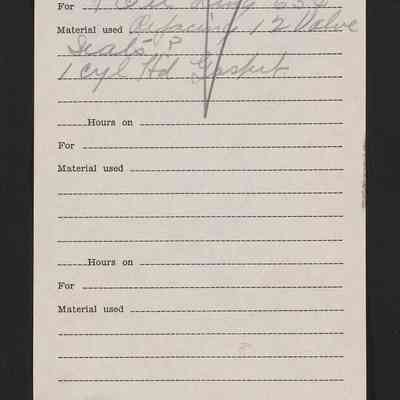 For 1
Material used Refacing 12 Valve
Seats
1 cyl Hd Gasket
Hours on
For
Material used
Hours on
For
Material used